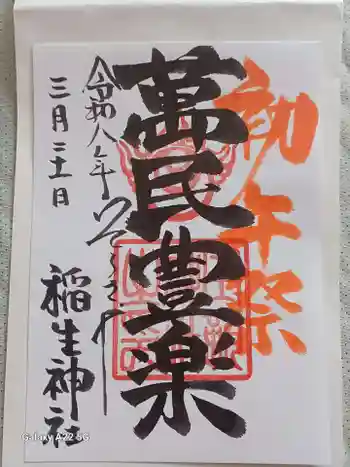 初午祭
萬民豊楽
令和八年
三月二十一日
稲生神社
Galaxy A22 5G